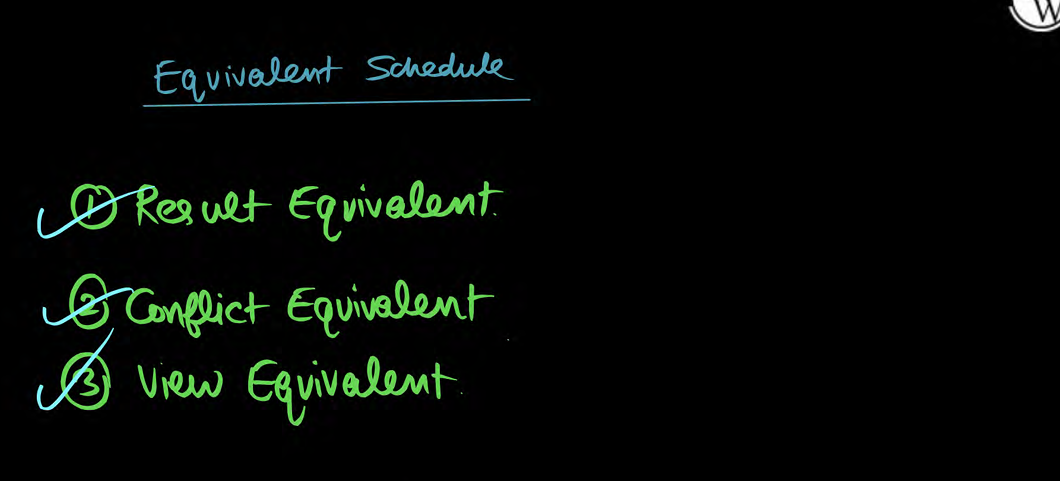 Equivalent Schedule
① Result Equivalent.
② Conflict Equivalent
③ View Equivalent.